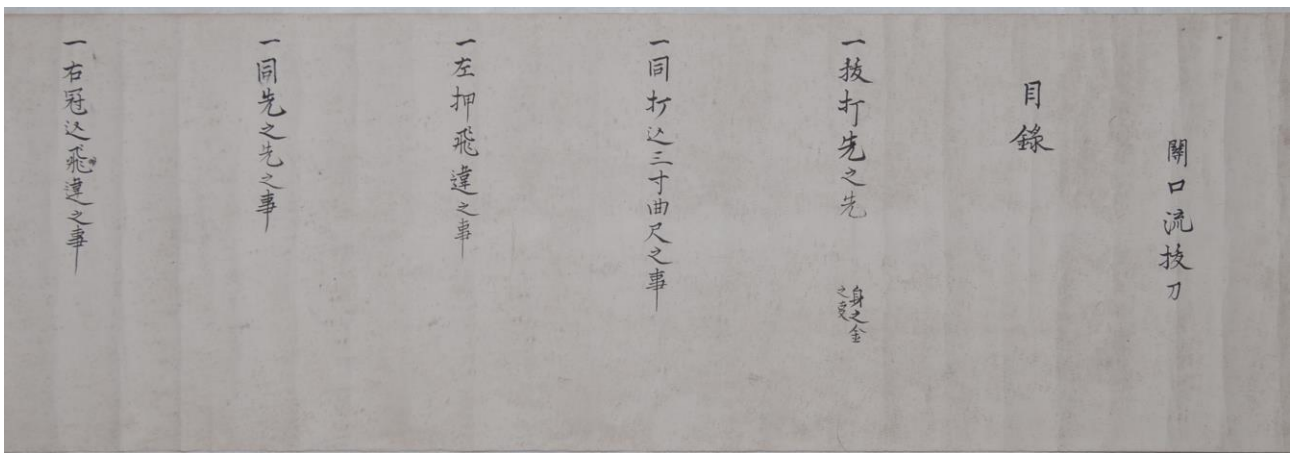 關口流抜刀
目錄
一抜打先之先
身之金
之事
一同打込三寸曲尺之事
一左押飛違之事
一同先之先之事
一右冠込飛違之事